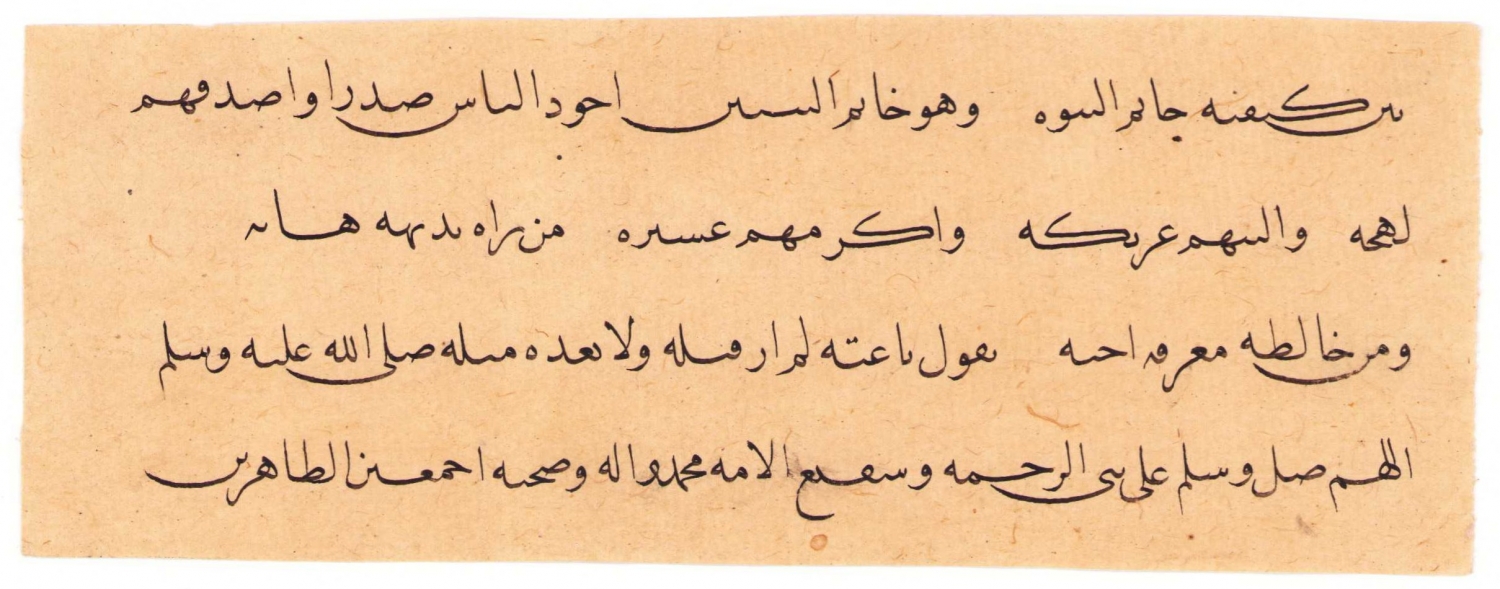 بين كتفيه خاتم النبوه وهو خاتم النبيين اجود الناس صدرا واصدقهم
لهجه والينهم عريكه واكرمهم عشيره من راه بديهه هابه
ومن خالطه معرفه احبه يقول ناعته لم ار قبله ولا بعده مثله صلى الله عليه وسلم
اللهم صل وسلم على نبى الرحمه وشفيع الامه محمد واله وصحبه اجمعين الطاهرين